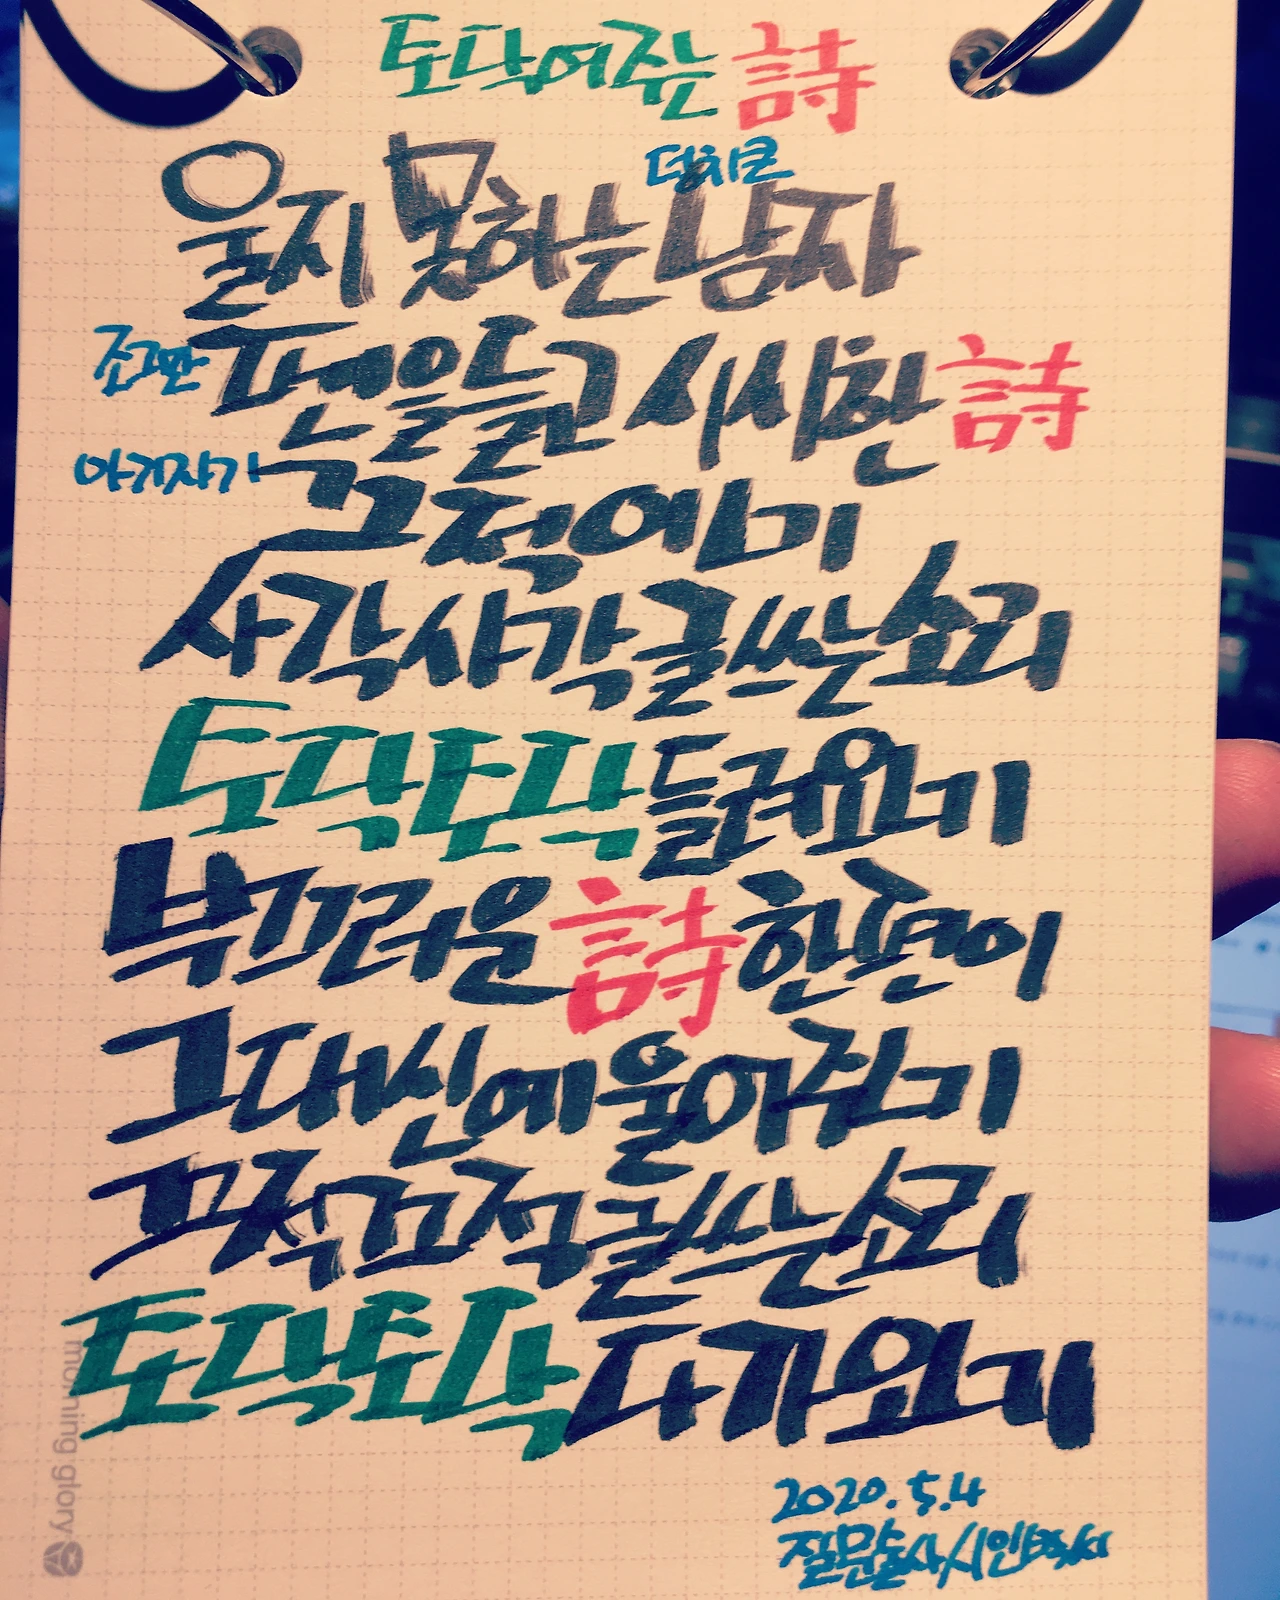 토닥여주는 詩
덩치큰
울지 못하는 남자
조그만 펜을 들고 시시한 詩
아기자기 끄적여 보기
사각사각 글쓰는 소리
토닥토닥 들려오기
부끄러운 詩 한편이
그대 신에 울어주기
끄적끄적 글쓰는 소리
토닥토닥 다가오기
2020.5.4
질문술사 시인박씨
morning glory